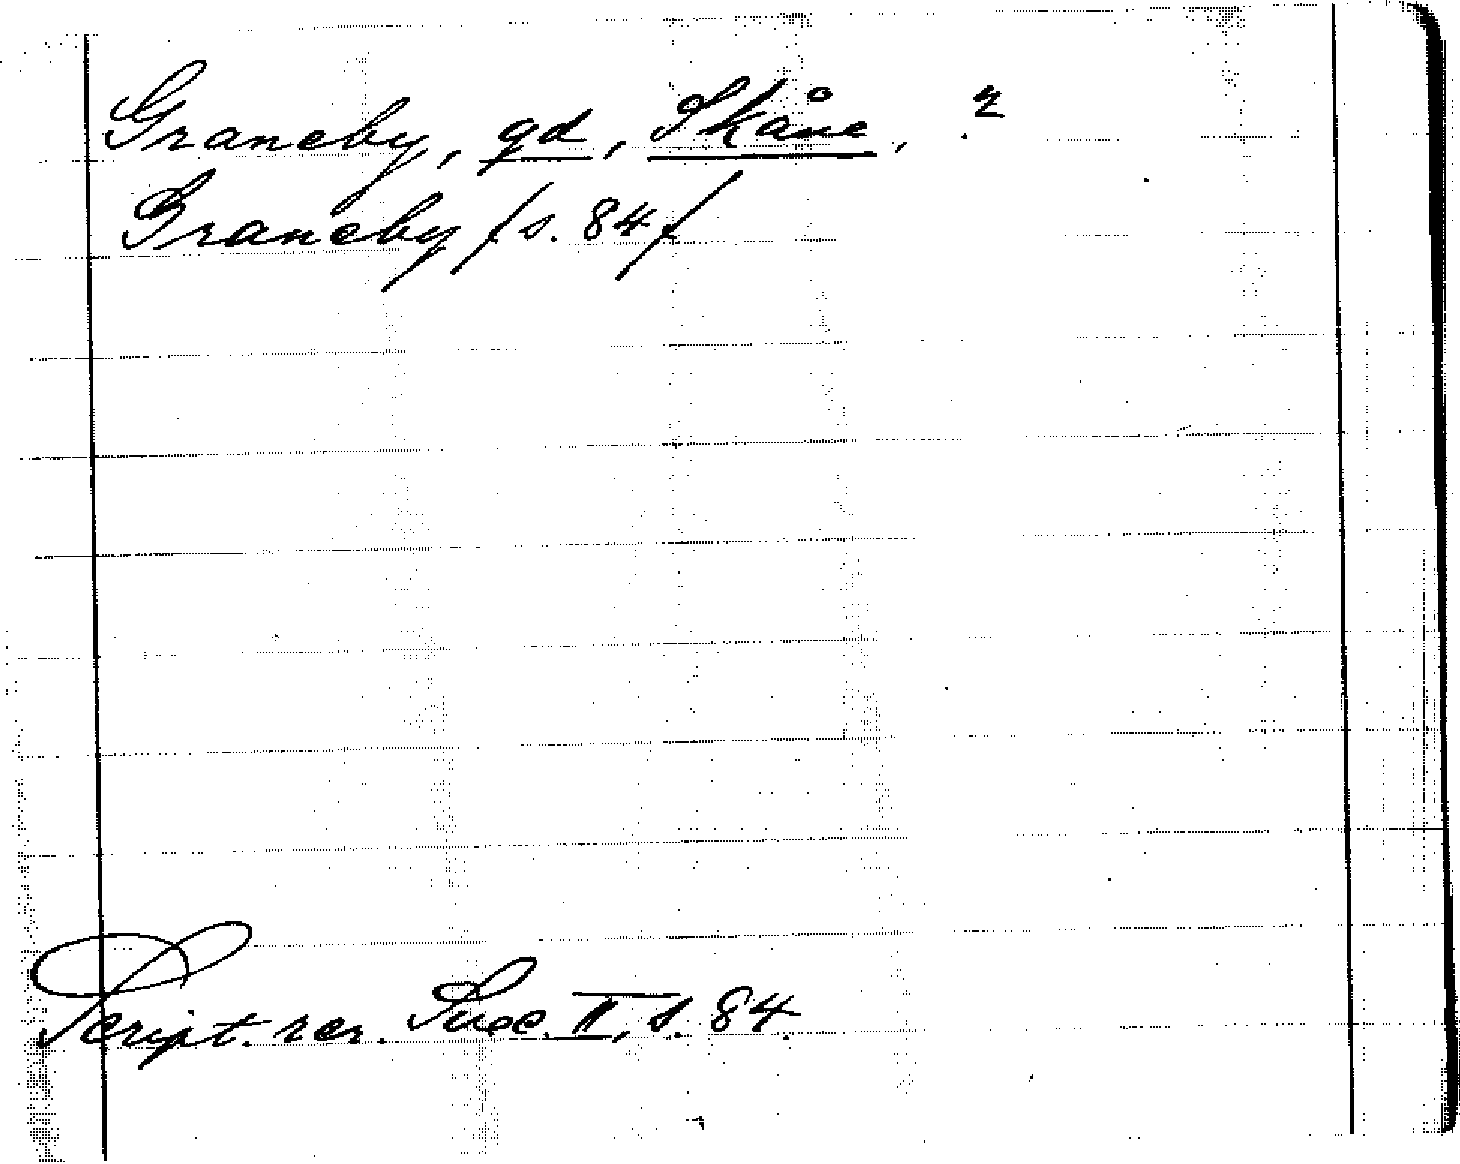 Graneby, gd, Skåne, 2
Graneby /s. 84/
Script. rer. Suec. II, s. 84.